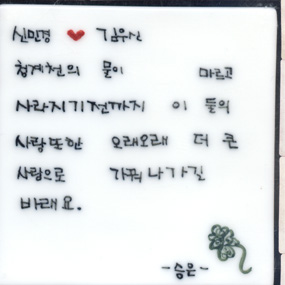 신민경 ♥ 김우신
청계천의 물이 마르고
사라지기전까지 이 둘의
사랑또한 오래오래 더 큰
사랑으로 가꿔나가길
바래요.
-승은-